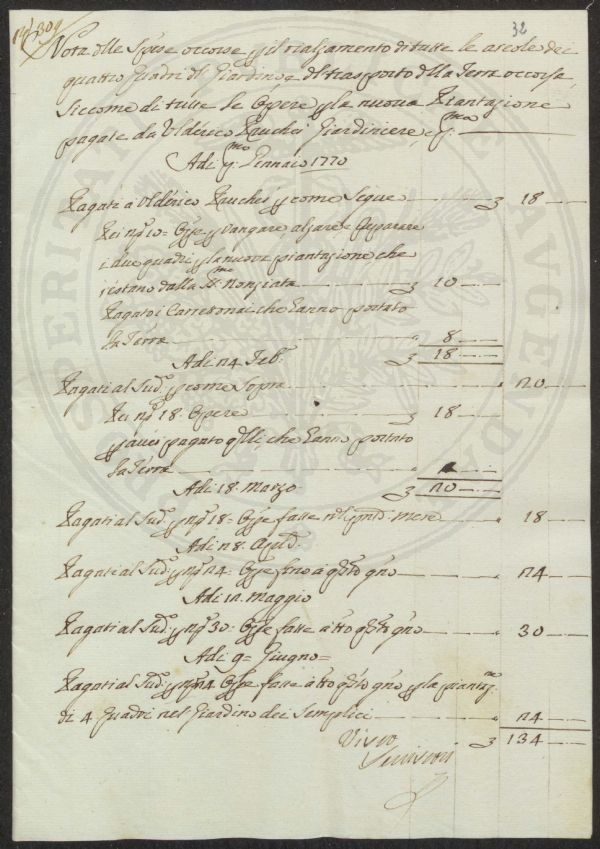 32
Nota delle Spese occorse p il rialzamento di tutte le aiuole dei
quattro Quadri del Giardino e del trasporto della Terra occorsa,
Siccome di tutte le Opere p la nuova Piantazione
pagate da Ulderico Giardiniere, e pmo:
Adi pmo: Gennaio 1770
Pagati a Ulderico p come Segue 18
Per no 10= Opre p vangare alzare e Reparare
i due quadri p la nuova piantazione, che
restano dalla SSma: Nonziata 10
Pagato i Carrettonai che hanno portato
la Terra 8
Adi 24 Feb: 18
Pagati al Sud: p come Sopra 20
Per no 18: Opere 18
p aver pagato q:lli, che hanno portato
la Terra
Adi 18: Marzo 20
Pagati al Sud: p no 18= Opre fatte nel pnte: Mese 18
Adi 28: Aple:
Pagati al Sud: p no 24= Opre fino a qsto gno 24
Adi Maggio
Pagati al Sud: p no 30: Opre fatte a tto qsto gno 30
Adi 9= Giugno=
Pagati al Sud: p no 24 Opre fatte a tto qsto gno p la piantazne
di 4 Quadri nel Giardino dei Semplici 24
Visto 134